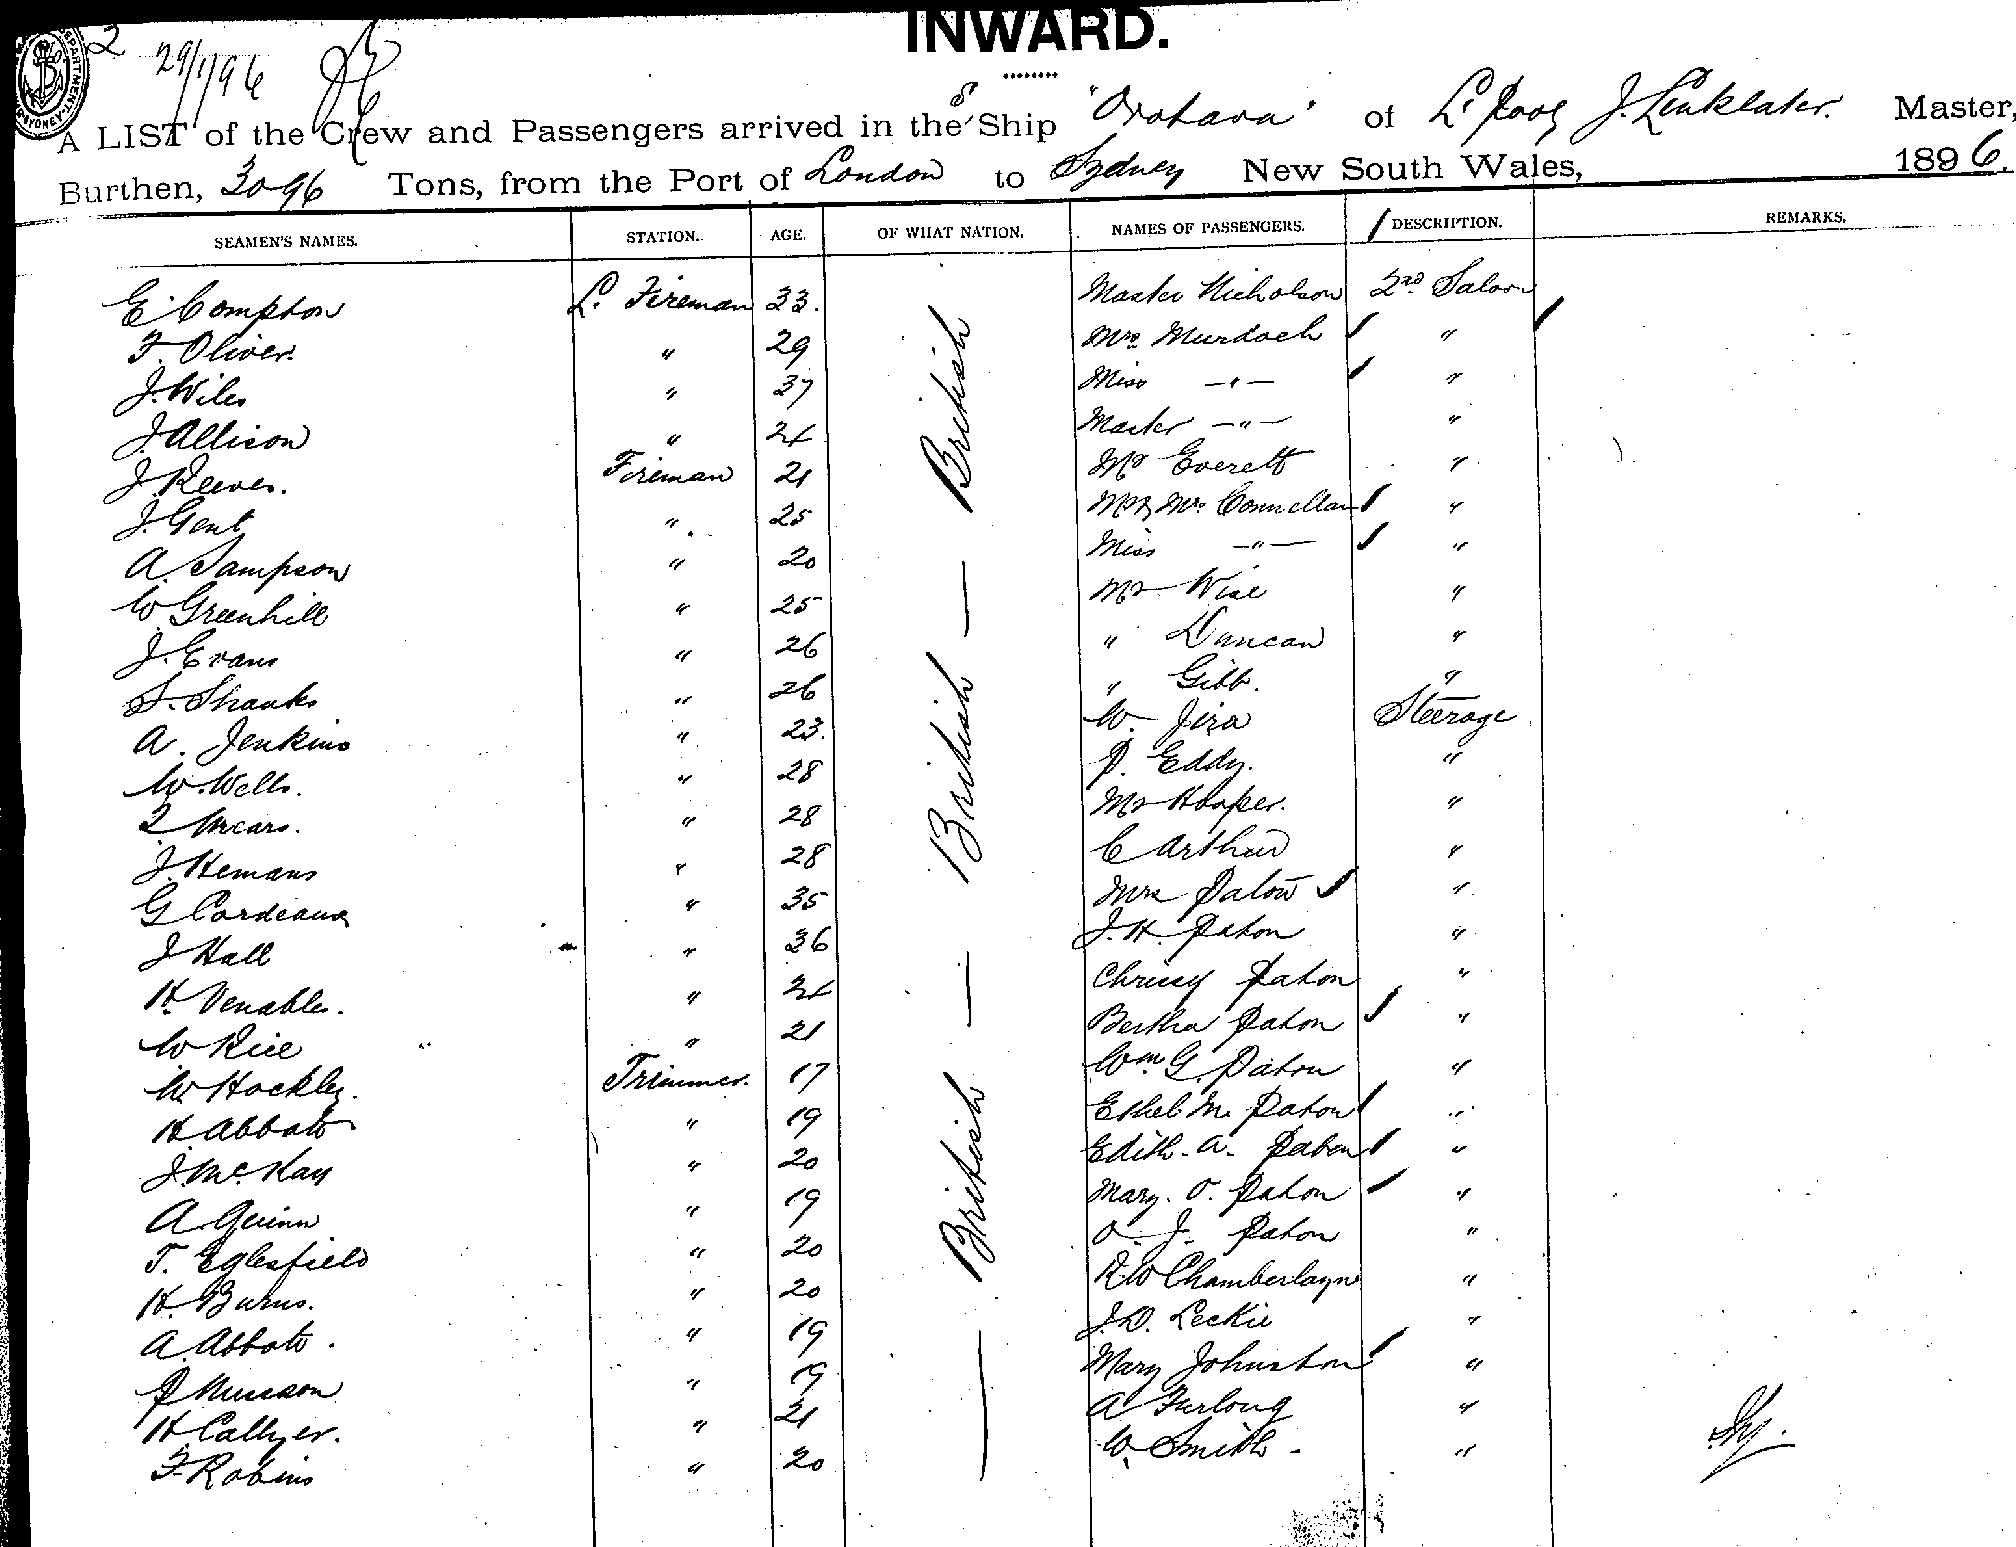 INWARD.
2
29/1/96
A LIST of the Crew and Passengers arrived in the S Ship "Orotava" of L'pool J. Linklater. Master,
Burthen, 3096 Tons, from the Port of London to Sydney New South Wales, 1896.
SEAMEN'S NAMES. STATION. AGE. OF WHAT NATION. NAMES OF PASSENGERS. DESCRIPTION. REMARKS.
E Compton L. Fireman 33. British Master Nicholson 2nd Saloon
F. Oliver. " 29 Mrs Murdoch "
J. Wiles " 37 Miss —"— "
J. Allison " 24 Master —"— "
J. Reeves. Fireman 21 Mr Everett "
J. Gent " 25 Mr & Mrs Connellan "
A. Sampson " 20 Miss —"— "
W Greenhill " 25 Mr Wise "
J. Evans " 26 British " Duncan "
S. Shanks " 26 " Gibb. "
A. Jenkins " 23. W. Jiza Steerage
W. Wells. " 28 P. Eddy. "
Mears. " 28 Mr Hooper. "
J. Hemans " 28 C Arthur "
G Cordeaux " 35 Mrs Paton "
J Hall " 36 J. H. Paton "
H. Venables. " 24 Chrissy Paton "
W Rice " 21 Bertha Paton "
W. Hockley. Trimmer. 17 British Wm G. Paton "
H Abbott " 19 Ethel M. Paton "
J. McKay " 20 Edith. A. Paton "
A Quinn " 19 Mary. O. Paton "
T. Eglesfield " 20 O. J. Paton "
H. Burns. " 20 R W Chamberlayne "
A. Abbott. " 19 J. D. Leckie "
P Musson " 19 Mary Johnston "
H Callyer. " 21 A Furlong "
F. Robins " 20 W. Smith - "